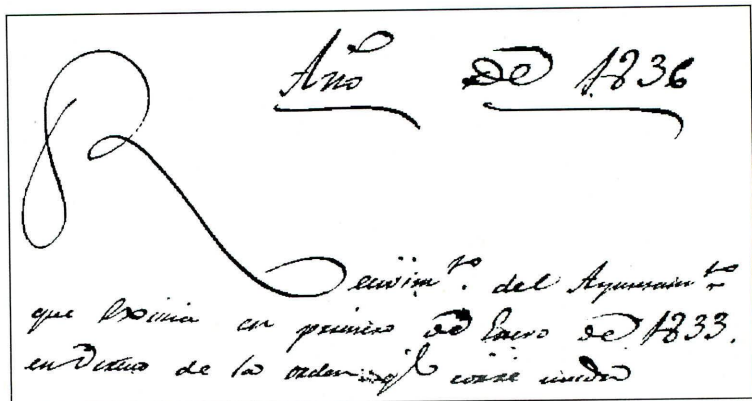 Año de 1836
Reunim.to del Ayuntam.to
que Existia en primero de Enero de 1833.
en de la orden q.e corre unida